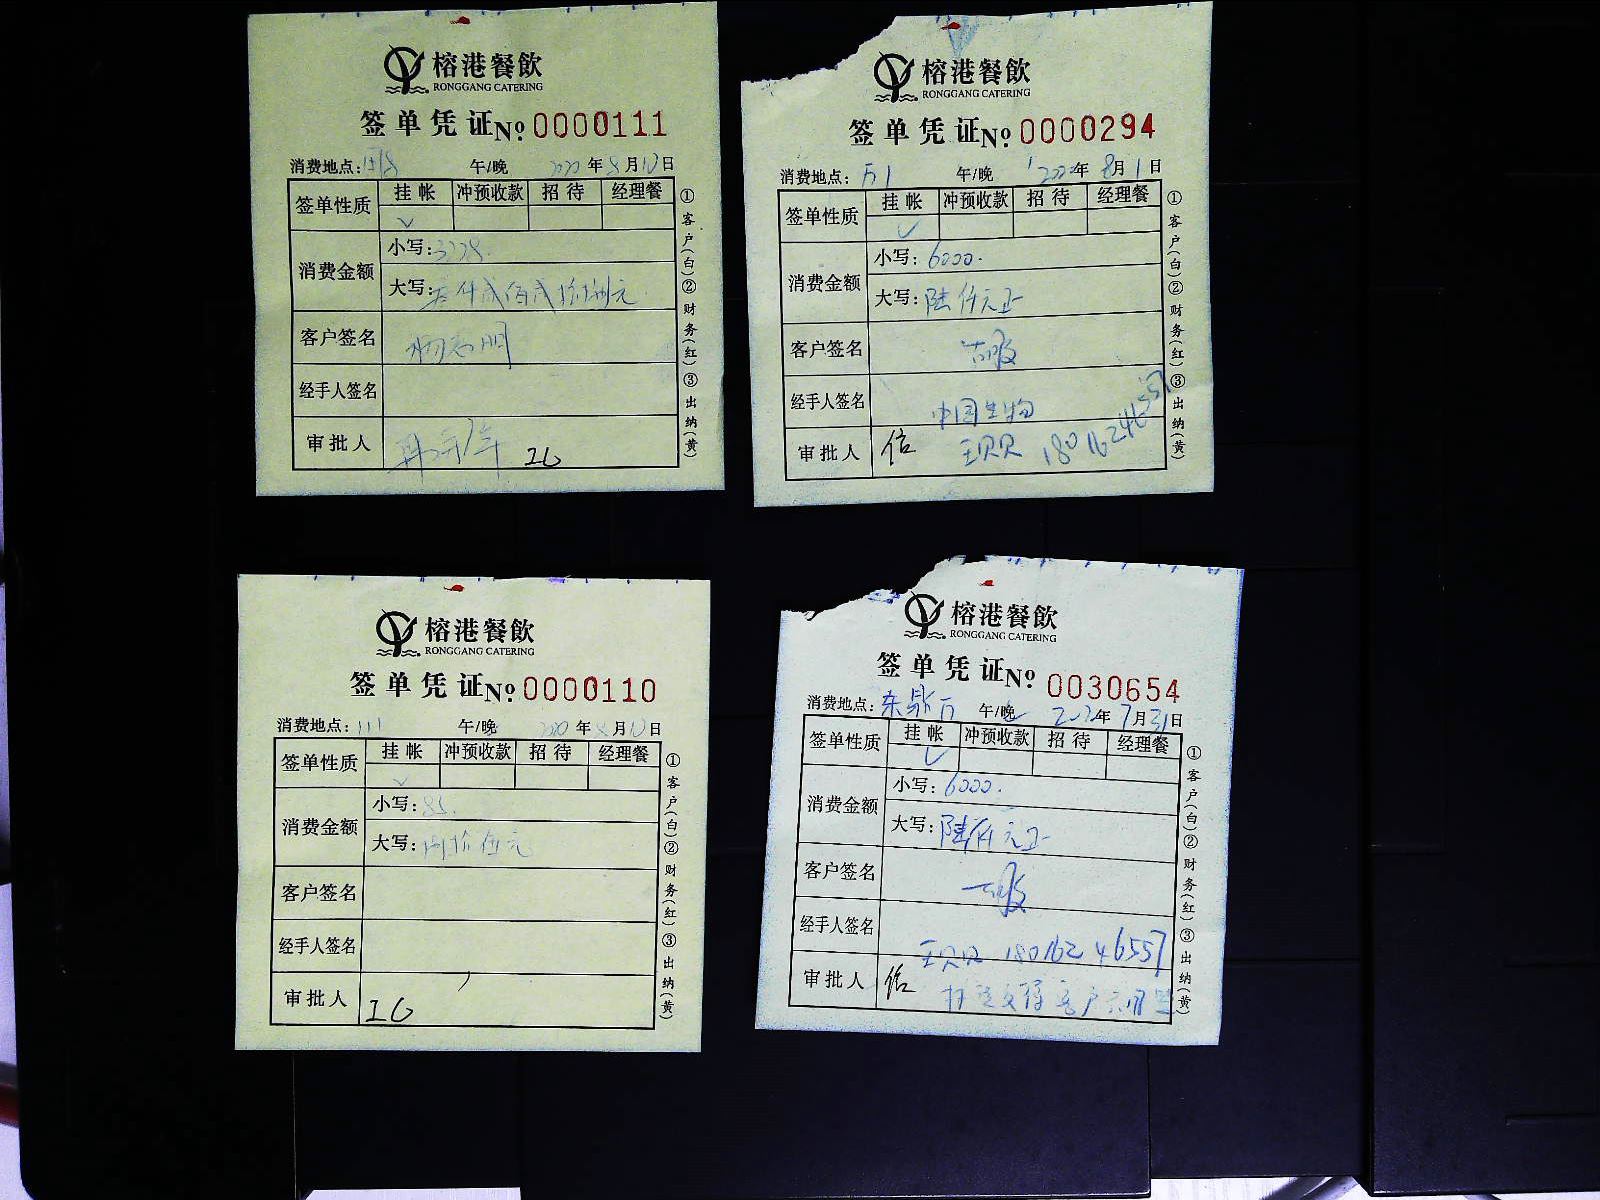 榕港餐飲
RONGGANG CATERING
签单凭证 No 0000111
消费地点: 午/晚 2020年8月12日
签单性质 挂帐 冲预收款 招待 经理餐
✓
消费金额 小写:3228.
大写:叁仟贰佰贰拾捌元
客户签名
经手人签名
审批人
①客户(白)②财务(红)③出纳(黄)
榕港餐飲
RONGGANG CATERING
签单凭证 No 0000294
消费地点: 午/晚 2020年8月1日
签单性质 挂帐 冲预收款 招待 经理餐
✓
消费金额 小写:6000.
大写:陆仟元正
客户签名
经手人签名 中国生物
审批人 信 王贝贝 18016246557
①客户(白)②财务(红)③出纳(黄)
榕港餐飲
RONGGANG CATERING
签单凭证 No 0000110
消费地点:111 午/晚 2020年8月12日
签单性质 挂帐 冲预收款 招待 经理餐
✓
消费金额 小写:85.
大写:捌拾伍元
客户签名
经手人签名
审批人
①客户(白)②财务(红)③出纳(黄)
榕港餐飲
RONGGANG CATERING
签单凭证 No 0030654
消费地点: 午/晚 2020年7月31日
签单性质 挂帐 冲预收款 招待 经理餐
✓
消费金额 小写:6000.
大写:陆仟元正
客户签名
经手人签名 王贝贝 18016246557
审批人 信 客户
①客户(白)②财务(红)③出纳(黄)